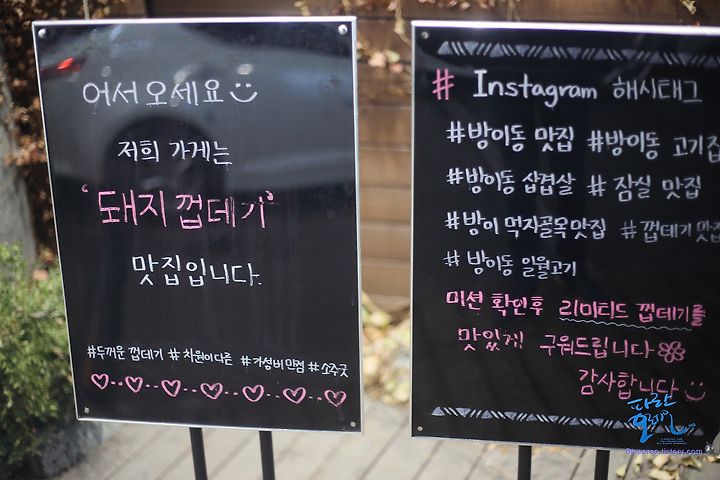 어서오세요
저희 가게는
'돼지껍데기'
맛집입니다.
#두꺼운 껍데기 #차원이다른 #가성비만점 #소주굿
# Instagram 해시태그
#방이동 맛집 #방이동 고기집
#방이동 삼겹살 # 잠실 맛집
#방이 먹자골목맛집 #껍데기 맛집
# 방이동 일월고기
미션 확인후 리미티드 껍데기를
맛있게 구워드립니다
감사합니다
파란